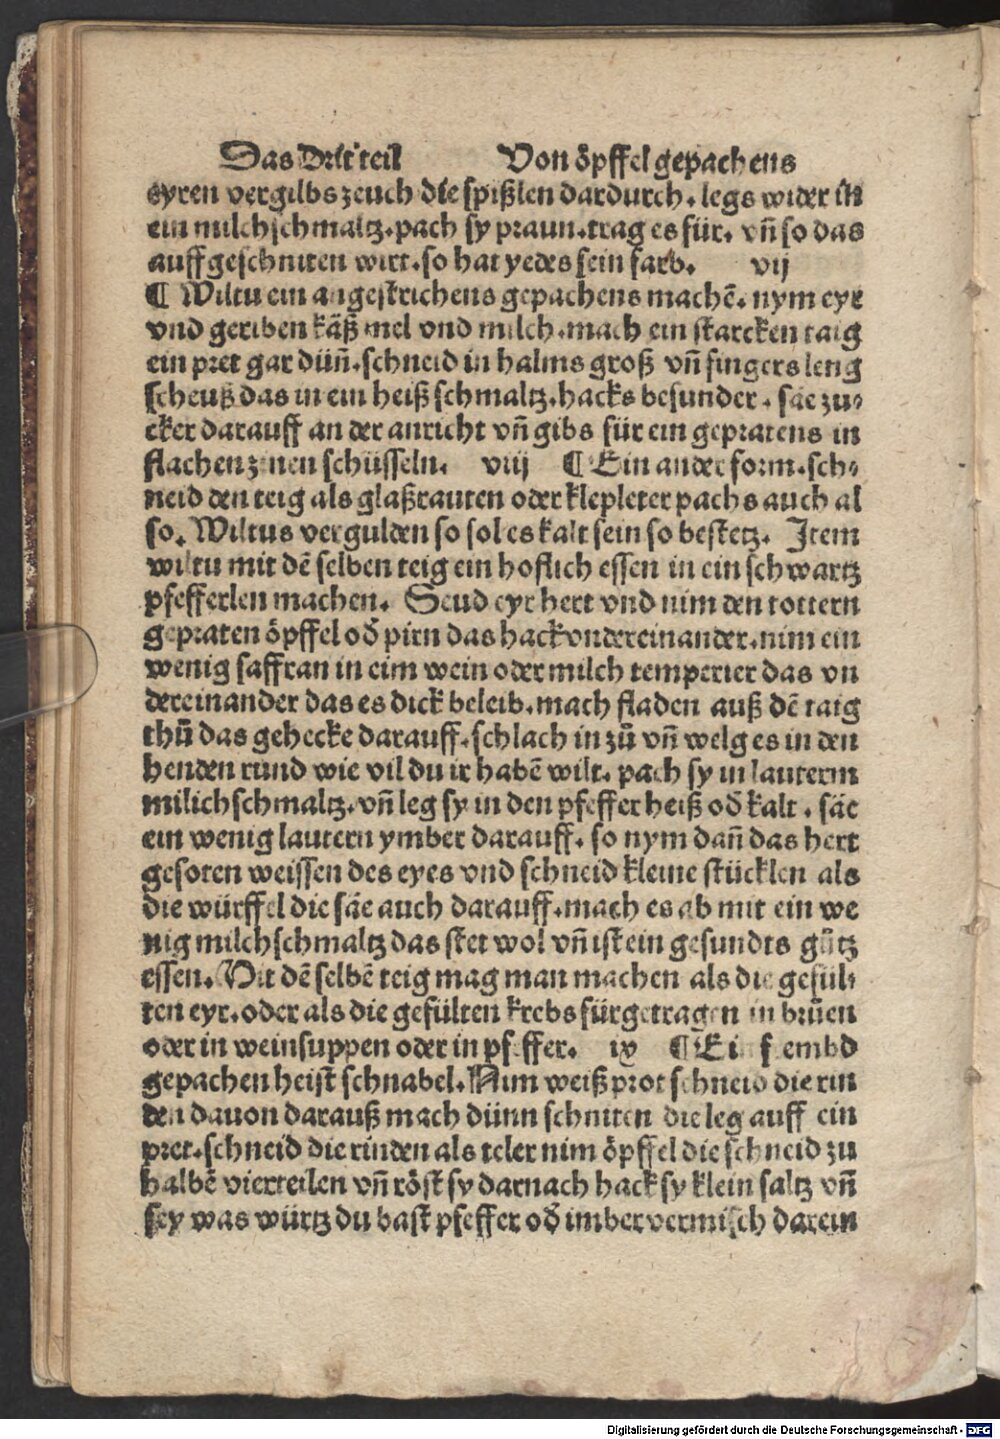 Das Drit teil Von öpffel gepachens
eyren vergilbs zeuch die spißlen dardurch. legs wider in
ein milchschmaltz. pach sy praun. trag es für. vñ so das
auffgeschniten wirt. so hat yedes sein farb. vij
¶ Wiltu ein angestrichens gepachens machē. nym eyr
vnd geriben käß mel vnd milch. mach ein starcken taig
ein pret gar düñ. schneid in halms groß vñ fingers leng
scheuß das in ein heiß schmaltz. hacks besunder. säe zu⸗
cker darauff an der anricht vñ gibs für ein gepratens in
flachen zinen schüsseln. viij ¶ Ein ander form. sch⸗
neid den teig als glaßrauten oder klepleter pachs auch al
so. Wiltus vergulden so sol es kalt sein so bestetz. Item
wiltu mit dē selben teig ein hoflich essen in ein schwartz
pfefferlen machen. Seud eyr hert vnd nim den tottern
gepraten öpffel od̄ pirn das hack vndereinander. nim ein
wenig saffran in eim wein oder milch temperier das vn
dereinander das es dick beleib. mach fladen auß dē taig
thů das gehecke darauff. schlach in zů vñ welg es in den
henden rund wie vil du ir habē wilt. pach sy in lauterm
milichschmaltz. vñ leg sy in den pfeffer heiß od̄ kalt. säe
ein wenig lautern ymber darauff. so nym dañ das hert
gesoten weissen des eyes vnd schneid kleine stücklen als
die würffel die säe auch darauff. mach es ab mit ein we
nig milchschmaltz das stet wol vñ ist ein gesundts gůtz
essen. Mit dē selbē teig mag man machen als die gefül⸗
ten eyr. oder als die gefülten krebs fürgetragen in brüen
oder in weinsuppen oder in pfeffer. ix ¶ Ein frembd
gepachen heist schnabel. Nim weiß prot schneid die rin
den dauon darauß mach dünn schniten die leg auff ein
pret. schneid die rinden als teler nim öpffel die schneid zu
halbē vierteilen vñ röst sy darnach hack sy klein saltz vñ
sey was würtz du hast pfeffer od̄ imber vermisch darein
Digitalisierung gefördert durch die Deutsche Forschungsgemeinschaft - DFG